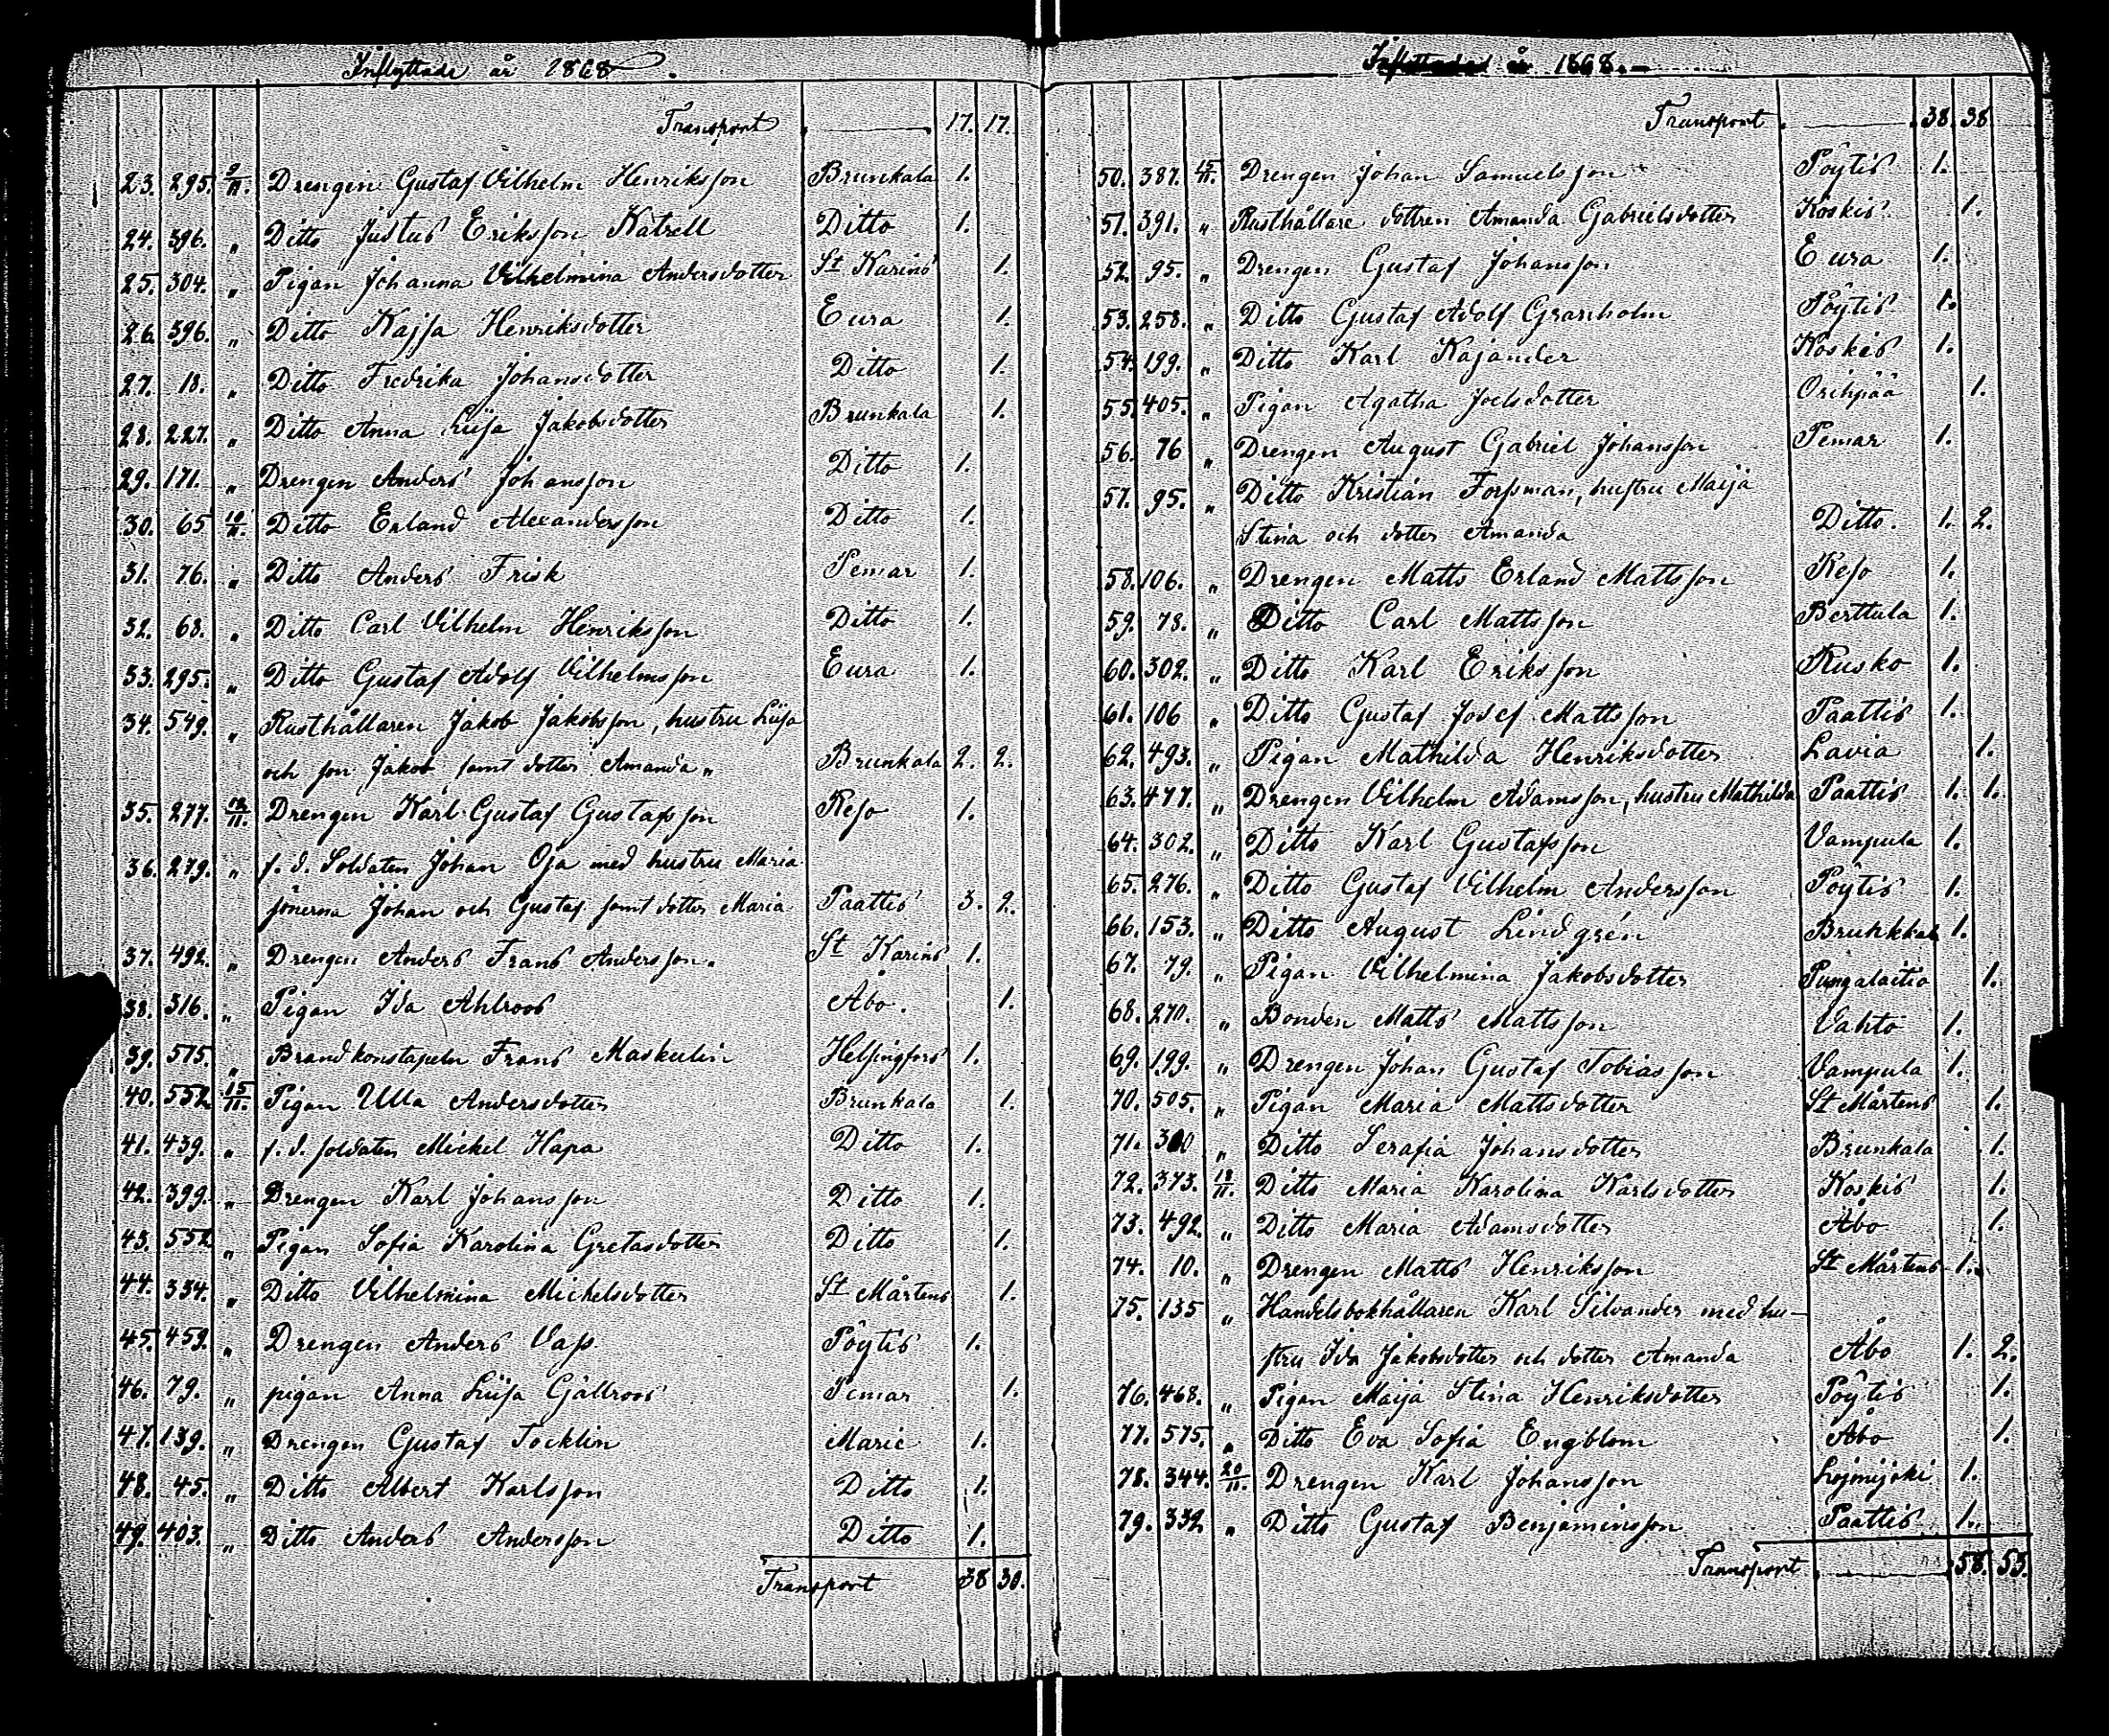 Inflyttade år 1868.
Transport . 17. 17.
23. 295. 9/11. Drengen Gustaf Vilhelm Henriksson Brunkala 1.
24. 396. „ Ditto Justus Eriksson Katrell Ditto 1.
25. 304. „ Pigan Johanna Vilhelmina Andersdotter St Karins 1.
26. 396. „ Ditto Kajsa Henriksdotter Eura 1.
27. 18. „ Ditto Fredrika Johansdotter Ditto 1.
28. 227. „ Ditto Anna Liisa Jakobsdotter Brunkala 1.
29. 171. „ Drengen Anders Johansson Ditto 1.
30. 65 10/11. Ditto Erland Alexandersson Ditto 1.
31. 76. „ Ditto Anders Frisk Pemar 1.
32. 68. „ Ditto Carl Vilhelm Henriksson Ditto 1.
33. 295. „ Ditto Gustaf Adolf Vilhelmsson Eura 1.
34. 549. „ Rusthållaren Jakob Jakobsson, hustru Liisa
och son Jakob samt dotter Amanda „ Brunkala 2. 2.
35. 277. 12/11. Drengen Karl Gustaf Gustafsson Reso 1.
36. 279. „ f. d. Soldaten Johan Oja med hustru Maria
sönerna Johan och Gustaf samt dotter Maria Paattis 3. 2.
37. 492. „ Drengen Anders Frans Andersson. St Karins 1.
38. 316. „ Pigan Ida Ahlroos Åbo. 1.
39. 575. „ Brandkonstapeln Frans Maskulin Helsingfors 1.
40. 552 15/11. Pigan Ulla Andersdotter Brunkala 1.
41. 439. „ f. d. soldaten Mickel Hapa Ditto 1.
42. 399. „ Drengen Karl Johansson Ditto 1.
43. 552 „ Pigan Sofia Karolina Gretasdotter Ditto 1.
44. 334. „ Ditto Vilhelmina Michelsdotter St Mårtens 1.
45. 459. „ Drengen Anders Vass Pöytis 1.
46. 79. „ pigan Anna Liisa Gällroos Pemar 1.
47. 139. „ Drengen Gustaf Tocklin Marie 1.
48. 45. „ Ditto Albert Karlsson Ditto 1.
49. 403. „ Ditto Anders Andersson Ditto 1.
Transport 38 30.
Inflyttade år 1868.
Transport . 38. 38
50. 387. 15/11. Drengen Johan Samuelsson Pöytis 1.
51. 391. „ Rusthållare dottren Amanda Gabrielsdotter Koskis. 1.
52. 95. „ Drengen Gustaf Johansson Eura 1.
53. 258. „ Ditto Gustaf Adolf Granholm Pöytis 1.
54. 199. „ Ditto Karl Kajander Koskis 1.
55. 405. „ Pigan Agatha Joelsdotter Orihpää 1.
56. 76 „ Drengen August Gabriel Johansson Pemar 1.
57. 95. „ Ditto Kristian Forssman, hustru Maija
Stina och dotter Amanda Ditto. 1. 2.
58. 106. „ Drengen Matts Erland Mattsson Reso 1.
59. 78. „ Ditto Carl Mattsson Berttula 1.
60. 302. „ Ditto Karl Eriksson Rusko 1.
61. 106 „ Ditto Gustaf Josef Mattsson Paattis 1.
62. 493. „ Pigan Mathilda Henriksdotter Lavia 1.
63. 477. „ Drengen Vilhelm Adamsson, hustru Mathilda Paattis 1. 1.
64. 302. „ Ditto Karl Gustafsson Vampula 1.
65. 276. „ Ditto Gustaf Vilhelm Andersson Pöytis 1.
66. 153. „ Ditto August Lindgrén 1.
67. 79. „ Pigan Vilhelmina Jakobsdotter Pungalaitio 1.
68. 270. „ Bonden Matts Mattsson Vahto 1.
69. 199. „ Drengen Johan Gustaf Tobiasson Vampula 1.
70. 505. „ Pigan Maria Mattsdotter St Mårtens 1.
71. „ Ditto Serafia Johansdotter Brunkala 1.
72. 373. 18/11. Ditto Maria Karolina Karlsdotter Koskis 1.
73. 492. „ Ditto Maria Adamsdotter Åbo 1.
74. 10. „ Drengen Matts Henriksson St Mårtens 1.
75. 135 „ Handelsbokhållaren Karl Silvander med hu-
stru Ida Jakobsdotter och dotter Amanda Åbo 1. 2.
76. 468. „ Pigan Maija Stina Henriksdotter Pöytis 1.
77. 575. „ Ditto Eva Sofia Engblom Åbo 1.
78. 344. 20/11. Drengen Karl Johansson Lojmijoki 1.
79. 332 „ Ditto Gustaf Benjaminsson Paattis 1.
Transport . 58. 53.